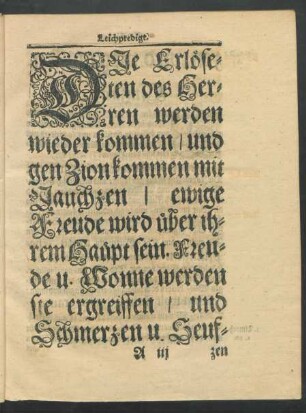 Leichpredigt.
DIe Erlöse-
ten des Her-
ren werden
wieder kommen / und
gen Zion kommen mit
Jauchzen / ewige
Freude wird über ih-
rem Haupt sein. Freu-
de u. Wonne werden
sie ergreiffen / und
Schmerzen u. Seuf-
A iij zen